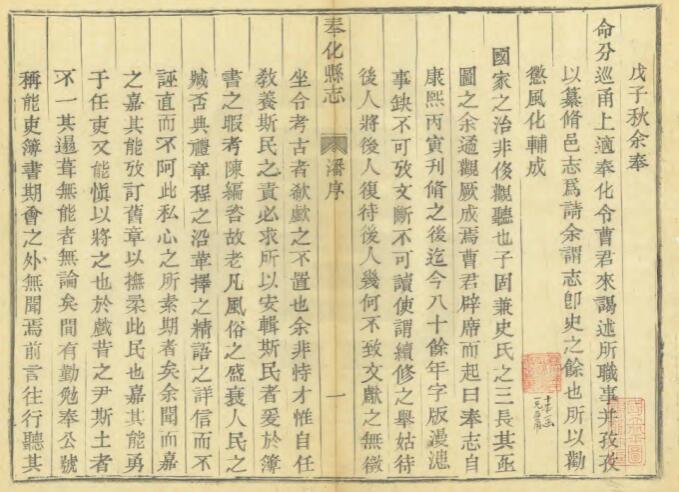 戊子秋余奉
命分巡甬上適奉化令曹君來謁述所職事并孜孜
以纂脩邑志爲請余謂志卽史之餘也所以勸
懲風化輔成
國家之治非侈觀聽也子固兼史氏之三長其亟
圖之余遹觀厥成焉曹君辟席而起曰奉志自
康熙丙寅刋脩之後迄今八十餘年字版漫漶
事缺不可攷文斷不可讀使謂續修之舉姑待
後人將後人復待後人幾何不致文獻之無徵
奉化縣志
潘序
一
坐令考古者欷歔之不置也余非恃才惟自任
敎養斯民之責必求所以安輯斯民者爰於簿
書之暇考陳編咨故老凡風俗之盛衰人民之
臧否典禮章程之沿革擇之精語之詳信而不
誣直而不阿此私心之所素期者矣余聞而嘉
之嘉其能攷訂舊章以撫柔此民也嘉其能勇
于任吏又能愼以將之也於戲昔之尹斯土者
不一其選葺無能者無論矣間有勤勉奉公號
稱能吏簿書期會之外無聞焉前言往行聽其